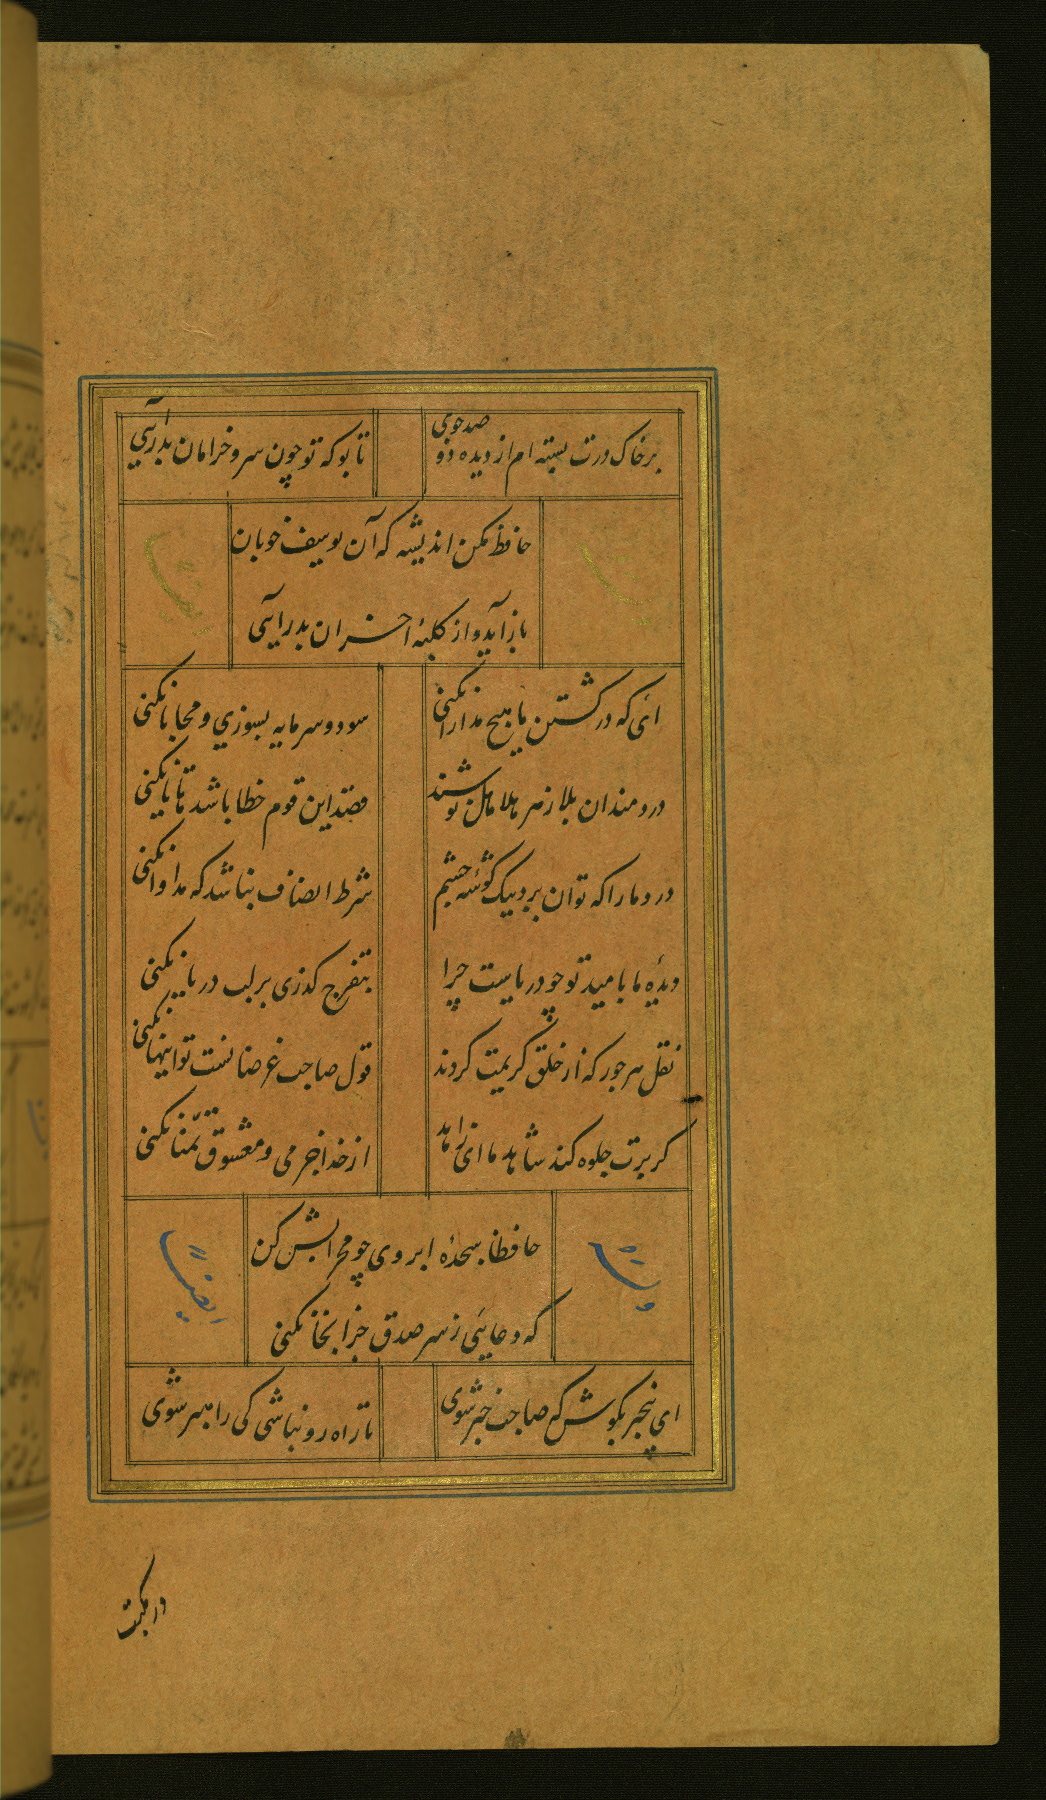 بر خاک درت بسته ام از دیده دو صد جوی
تا بو که تو چون سرو خرامان بدر آیی
حافظ مکن اندیشه که آن یوسف خوبان
باز آید و از کلبهٔ احزان بدر آیی
ای که در کشتن ما هیچ مدارا نکنی
سود و سرمایه بسوزی و محابا نکنی
دردمندان بلا زهر هلاهل نوشند
قصد این قوم خطا باشد تا نکنی
درد ما را که توان برد بیک گوشه چشم
شرط انصاف نباشد که مداوا نکنی
دیدهٔ ما بامید تو چو دریاست چرا
بتفرج گذری بر لب دریا نکنی
نقل هر جور که از خلق کریمت کردند
قول صاحب غرضانست تو اینها نکنی
گر برت جلوه کند شاهد ما ای زاهد
از خدا جز می و معشوق تمنا نکنی
حافظا سجدهٔ ابروی چو محرابش کن
که دعایی ز سر صدق جز آنجا نکنی
وله
ایضا
ای بیخبر بکوش که صاحب خبر شوی
تا راه رو نباشی کی راهبر شوی
در مکتب